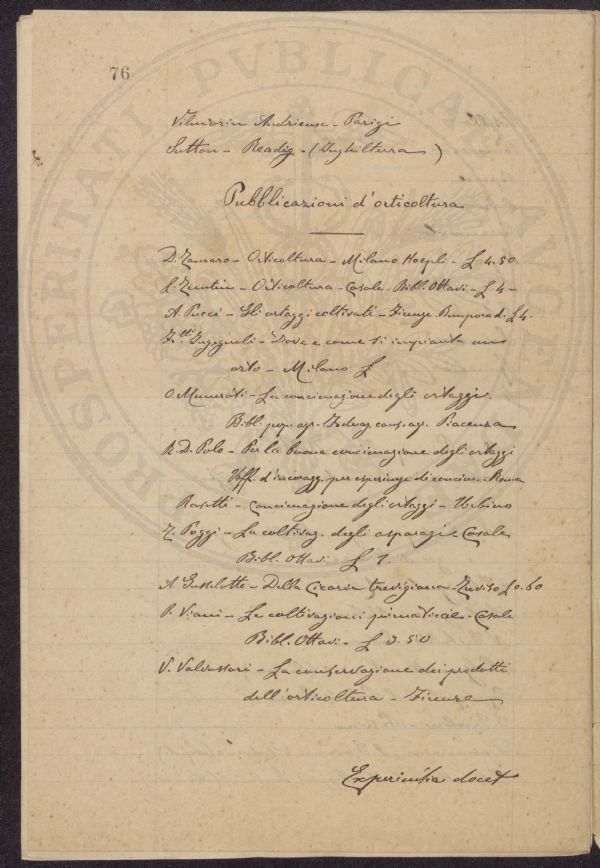 76
PVBLICAE
PROSPERITATI
Vilmorin Andrieux - Parigi
Sutton - Readig - (Inghilterra)
Pubblicazioni d'orticoltura
D. Tamaro - Orticoltura - Milano Hoepli - £ 4.50
Orticoltura - Casale - Bibl. Ottavi - £ 4 -
A. Pucci - Gli ortaggi coltivati - Firenze £ 4.
F.lli Ingegnoli - Dove e come si impianta un
orto - Milano £
O. Munerati - La concimazione degli ortaggi.
Bibl. pop. agr. cons. agr. Piacenza
R. D. Polo - Per la buona concimazione degli ortaggi
Uff. d'incoragg. per esperienze di concim. - Roma
Rosetti - Concimazione degli ortaggi - Urbino
Z. Poggi - La coltivaz. degli asparagi - Casale
Bibl. Ottavi £ 1.
A. - Della Cicoria trevigiana - Treviso £ 0.60
P. Viani - Le coltivazioni primaticcie - Casale
Bibl. Ottavi - £ 3.50
V. Valvassori - La conservazione dei prodotti
dell'orticoltura - Firenze
Experientia docet